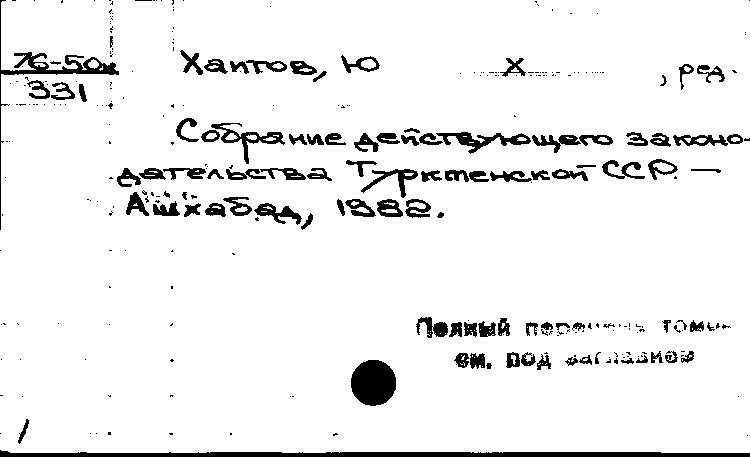 76-50к
331
Хаитов, Ю Х , ред.
Собрание действующего законо-
дательства Туркменской ССР. —
Ашхабад, 1982.
Полный перечень томов
см. под заглавием